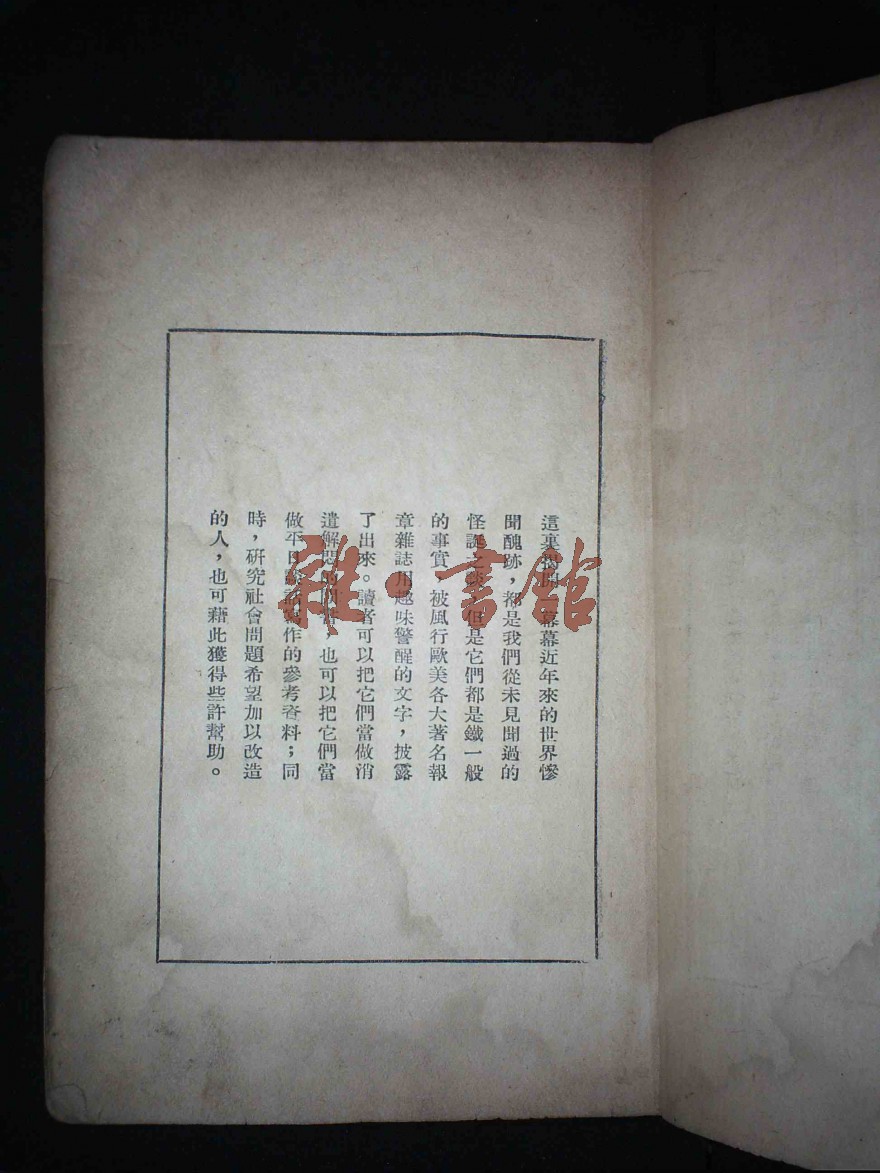 這裏揭開一幕幕近年來的世界慘
聞醜跡，都是我們從未見聞過的
怪誕之談，但是它們都是鐵一般
的事實，被風行歐美各大著名報
章雜誌用趣味警醒的文字，披露
了出來。讀者可以把它們當做消
遣解悶的，也可以把它們當
做平日談話寫作的參考資料；同
時，研究社會問題希望加以改造
的人，也可藉此獲得些許幫助。
雜·書館